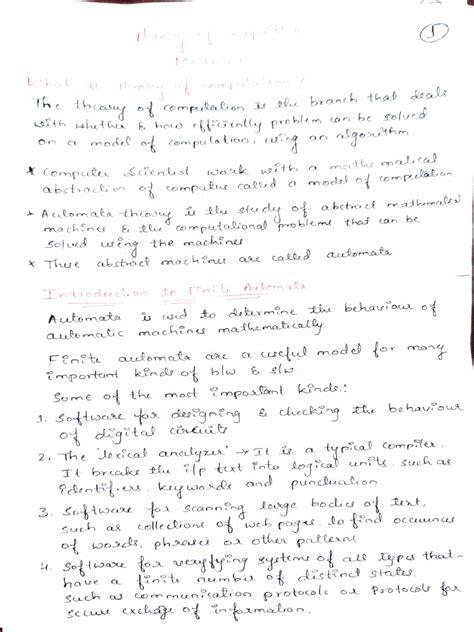 1
Theory of computation
What is theory of computation?
The theory of computation is the branch that deals
with whether & how efficiently problem can be solved
on a model of computation, using an algorithm.
* Computer Scientist work with a mathematical
abstraction of computer called a model of computation
* Automata theory is the study of abstract mathematical
machines & the computational problems that can be
solved using the machines
* These abstract machines are called automata
Introduction to Finite Automata
Automata is used to determine the behaviour of
automatic machines mathematically
Finite automata are a useful model for many
important kinds of h/w & s/w.
Some of the most important kinds:
1. Software for designing & checking the behaviour
of digital circuits
2. The 'lexical analyzer' → It is a typical compiler.
It breaks the i/p text into logical units. such as
identifiers, keywords and punctuation.
3. Software for scanning large bodies of text,
such as collections of web pages. to find
of words, phrases or other patterns
4. Software for verifying systems of all types that
have a finite number of distinct states
such as communication protocols or Protocols for
secure exchange of information.